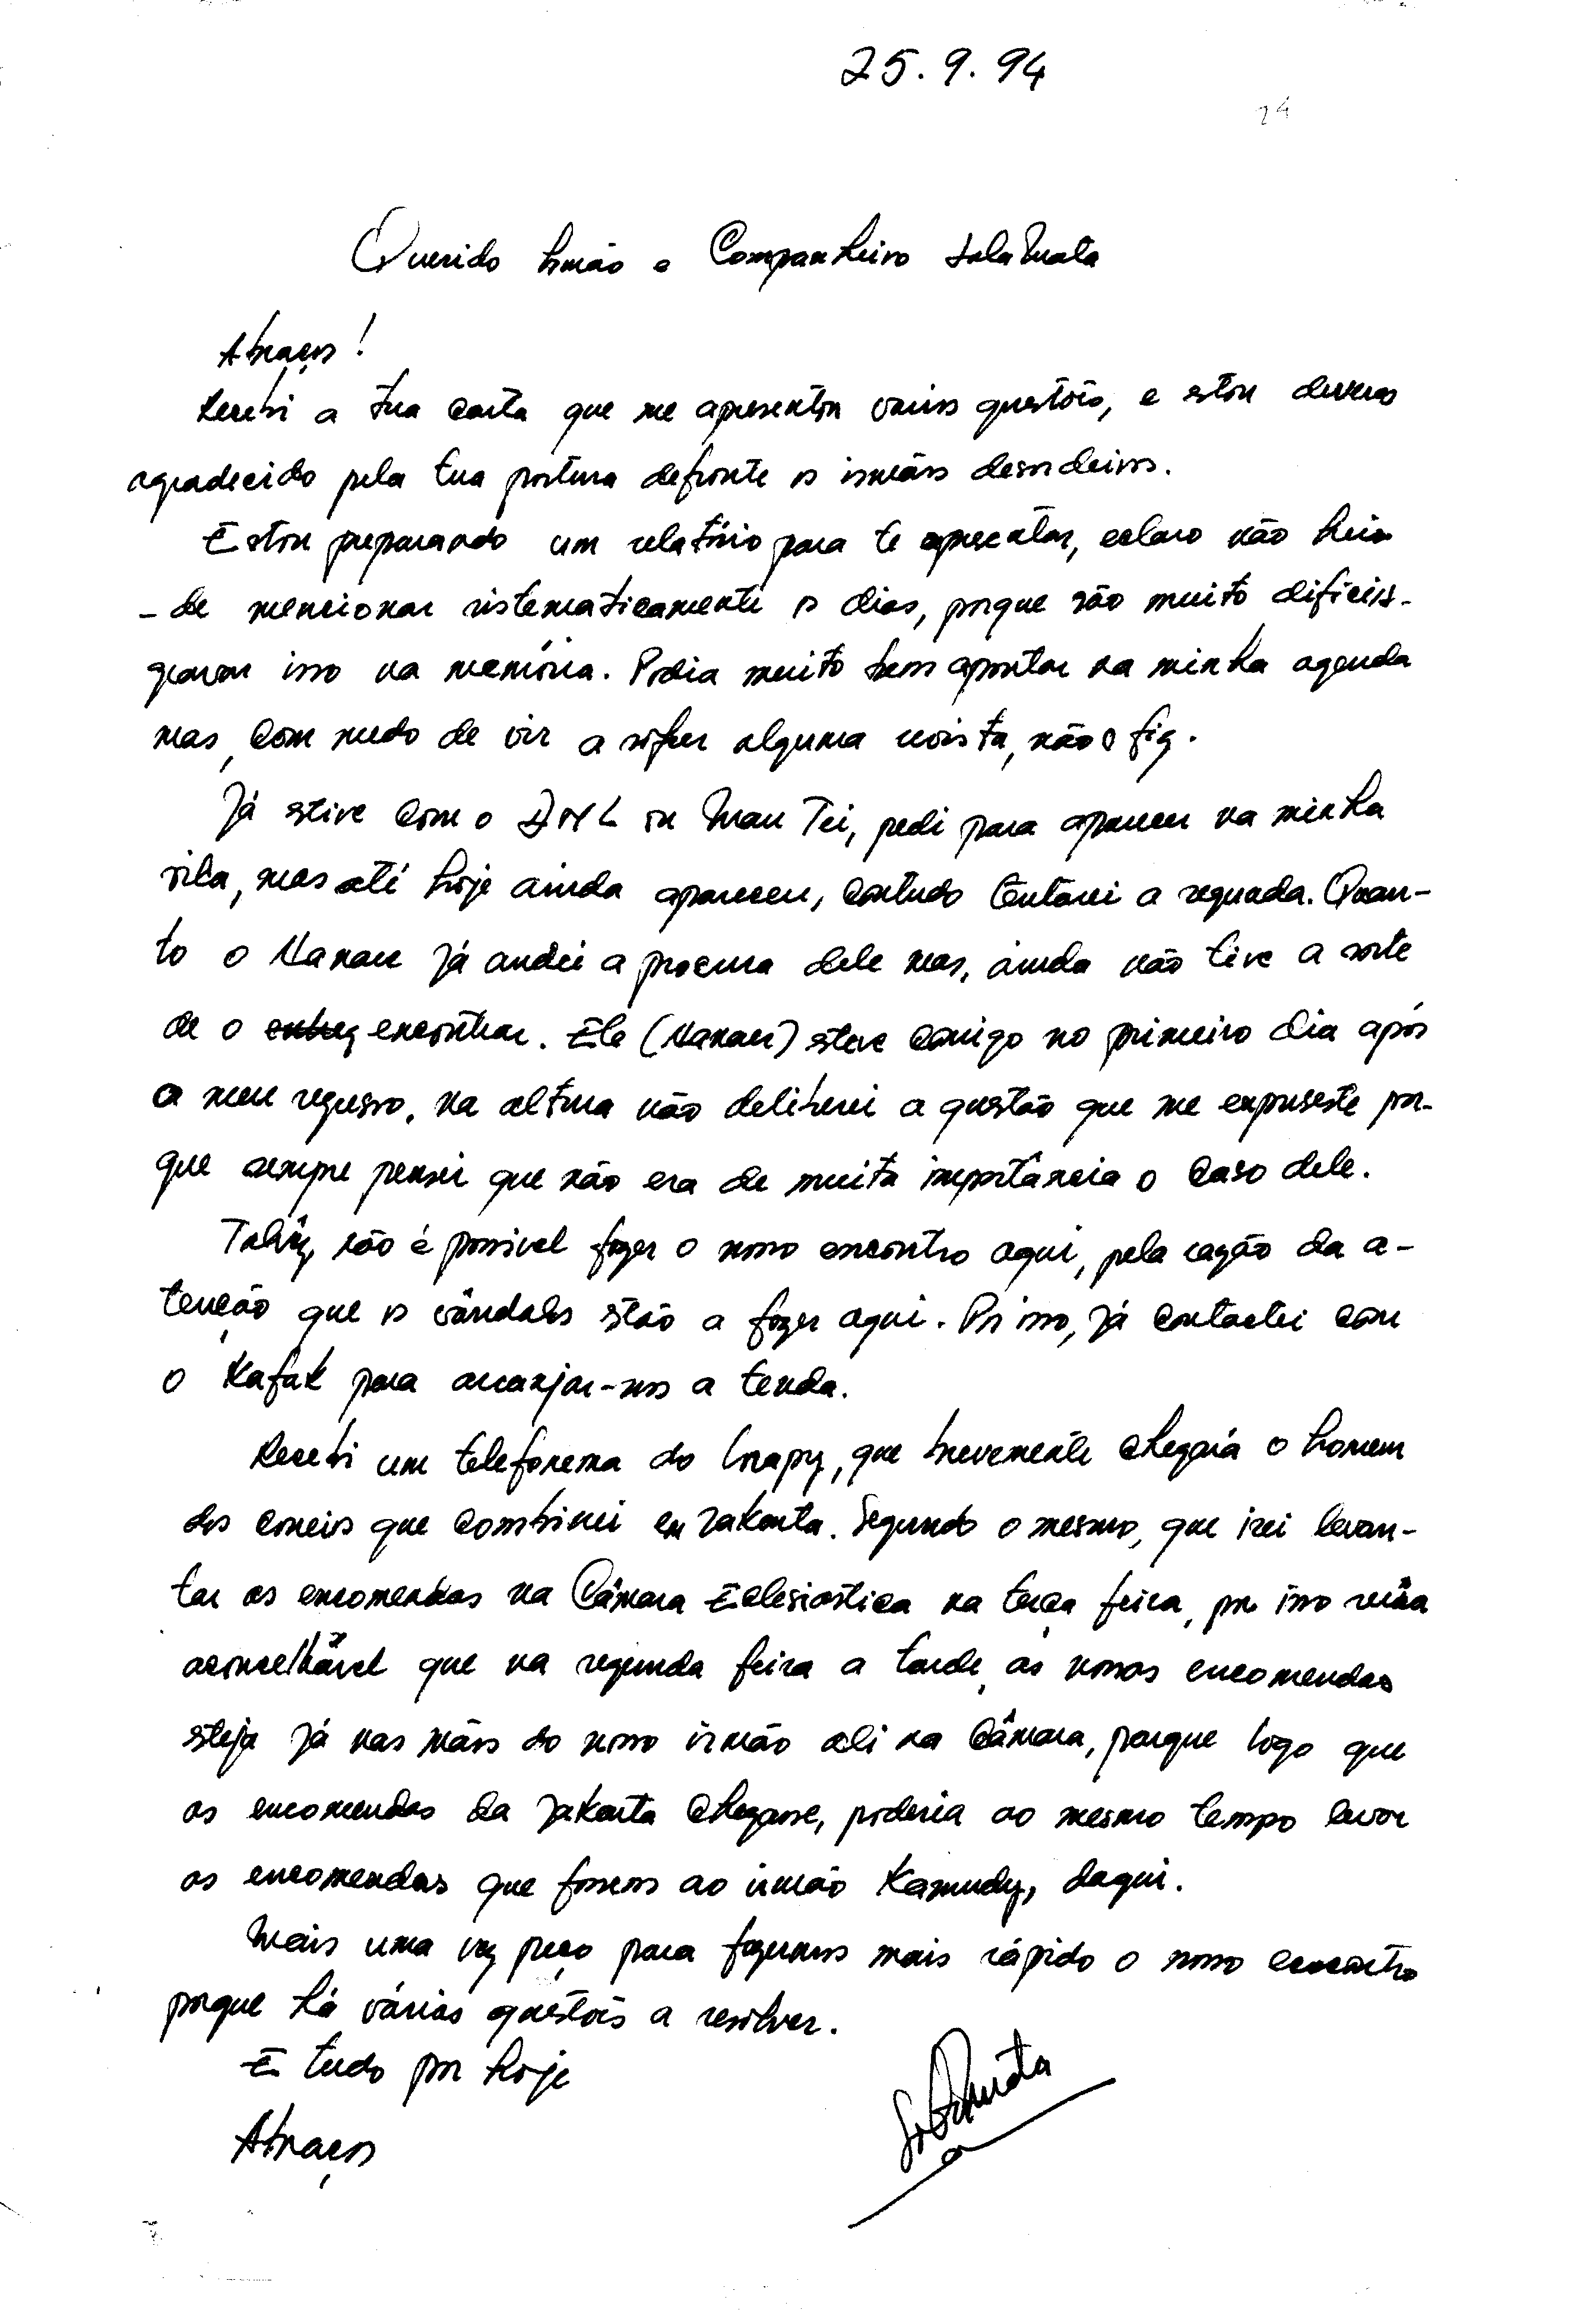 25.9.94
24
Querido Irmão e Companheiro Sala Mata
Abraços!
Recebi a tua carta que me apresentou vários questões, e estou deveras
agradecido pela tua postura defronte os irmãos desordeiros.
Estou preparando um relatório para te apresentar, eclaro não heia
-de mencionar sistematicamente os dias, porque são muito dificeis-
gravar isso na memória. Podia muito bem apontar na minha agenda
mas, com medo de vir a sofrer alguma revista, não o fiz.
Já estive com o ou Mau Tei, pedi para aparecer na minha
vila, mas até hoje ainda apareceu, contudo tentarei a segunda. Quan-
to o Nanau já andei a procura dele mas, ainda não tive a sorte
de o encontrar. Ele (Nanau) esteve comigo no primeiro dia após
o meu regresso, na altura não deliberei a questão que me expuseste por-
que sempre pensei que não era de muita importância o caso dele.
Talvêz, não é possivel fazer o nosso encontro aqui, pela razão da a-
tenção que os vândalos estão a fazer aqui. Por isso, já contactei com
o Kafak para arranjar-nos a tenda.
Recebi um telefonema do que brevemente chegará o homem
dos correios que combinei em Jakarta. Segundo o mesmo, que irei levan-
tar as encomendas na Câmara Eclesiástica na terça feira, por isso seria
aconcelhável que na segunda feira a tarde, as nossas encomendas
esteja já nas mãos do nosso irmão ali na Câmara, porque logo que
as encomendas da Jakarta chegasse, poderia ao mesmo tempo levar
as encomendas que fossem ao irmão Kamudy, daqui.
Mais uma vez peço para fazermos mais rápido o nosso encontro
porque há várias questões a resolver.
E tudo por hoje
Abraços